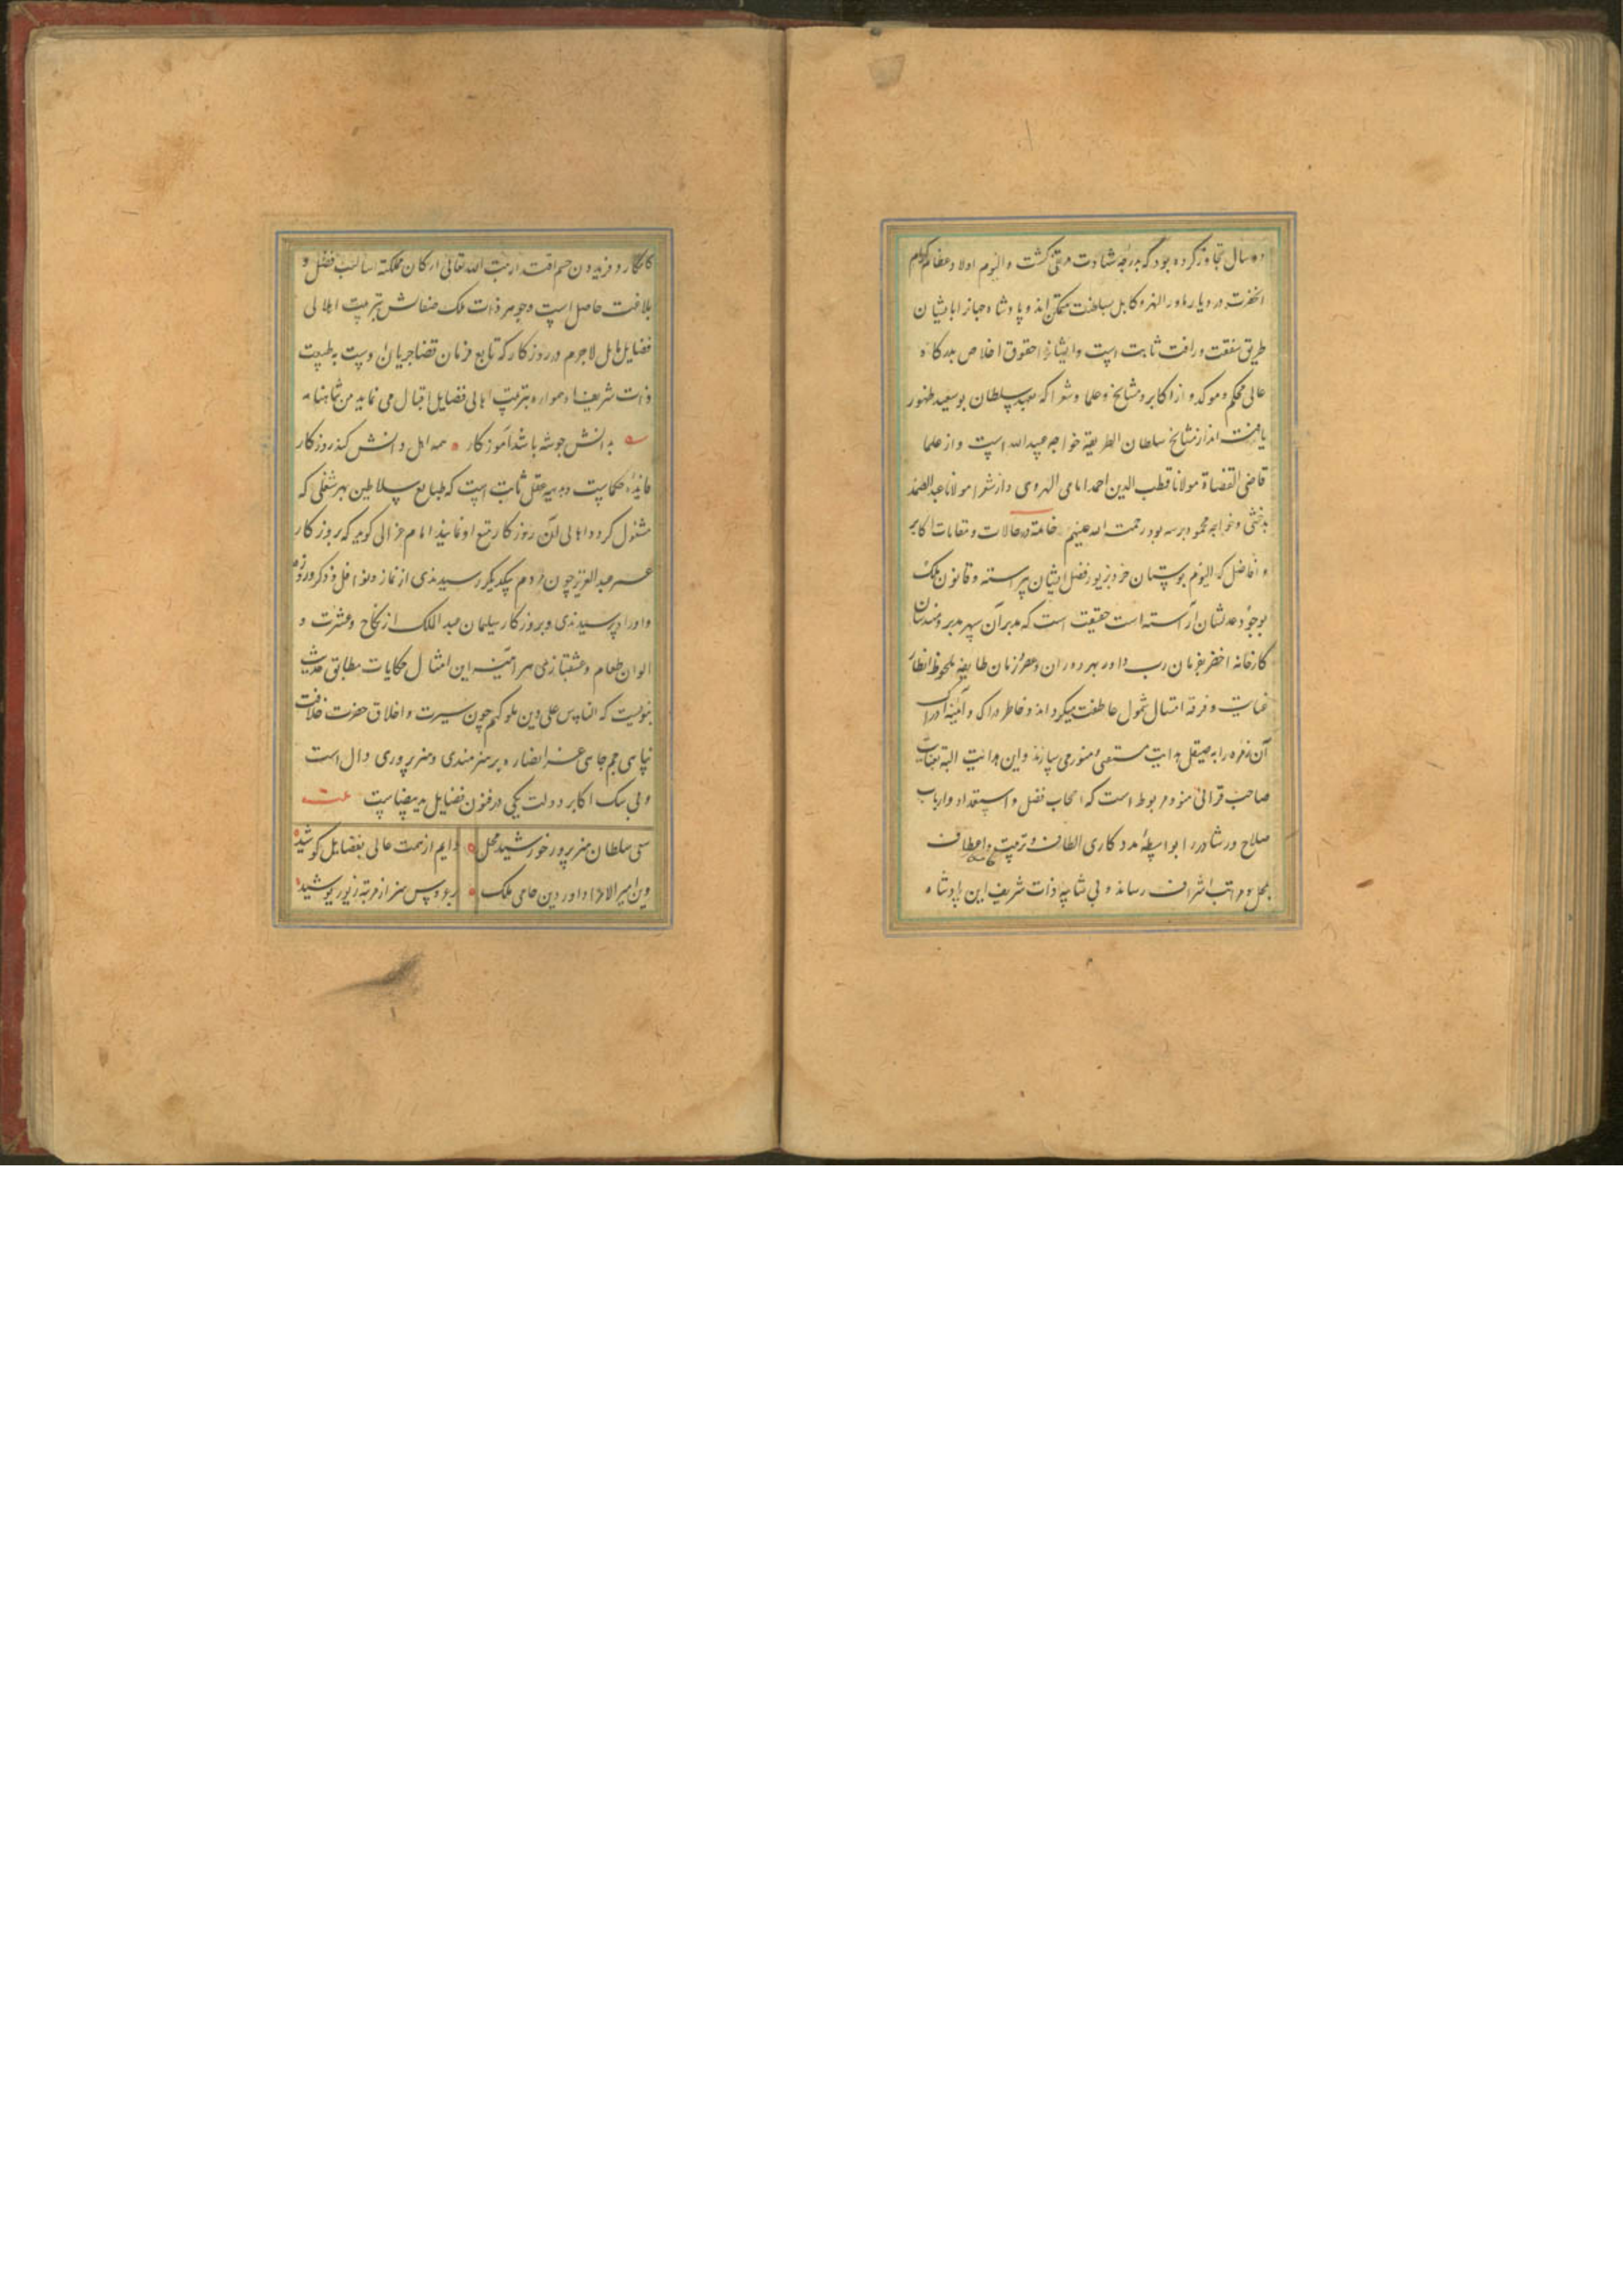 ده سال تجاوز کرده بود که بدرجه شهادت مرتقی گشت و الیوم اولاد عظام کرام
آنحضرت در دیار ماورالنهر و کابل بسلطنت متمکن اند و پادشاه جهانرا با ایشان
طریق شفقت و رافت ثابت است و ایشانرا حقوق اخلاص بدرگاه
عالی محکم و موکد و از اکابر و مشایخ و علما و شعرا که بعهد سلطان بوسعید ظهور
یافته اند از مشایخ سلطان الطریقه خواجه عبیدالله است و از علما
قاضی القضاة مولانا قطب الدین احمد امامی الهروی و از شعرا مولانا عبدالصمد
بدخشی و خواجه محمود برسه بود رحمت الله علیهم خاتمة در حالات و مقامات اکابر
و افاضل که الیوم بوستان خرد بزیور فضل ایشان پیراسته و قانون ملک
بوجود عدلشان آراسته است حقیقت است که مدبر آن سپهر مدبر و مهندسان
کارخانه اخضر بفرمان رب داور بهر دوران و عصر و زمان طایفه ملحوظ انظار
عنایت و فرقه امتثال شمول عاطفت میگرداند و خاطر دراکی و آئینه ادراک
آن زمره را به صیقل هدایت مستضی و منور می سازند و این هدایت البته بعنایت
صاحب قرانی منوط و مربوط است که اصحاب فضل و استعداد و ارباب
صلاح و رشاد را بواسطه مددکاری الطاف و تربیت و اعطاف
بمحل و مراتب اشراف رساند و بی شایبه ذات شریف این پادشاه
کامکار و فریدون حشم اقتدار مثبت الله تعالی ارکان مملکته اسالیب فضل و
بلاغت حاصل است و جوهر ذات ملک صفاتش بتربیت اهالی
فضایل مایل لاجرم در روزگار که تابع فرمان قضا جریان اوست به طبیعت
ذات شریف او همواره بتربیت اهالی فضایل اقبال می نماید من شاهنامه
به دانش چو شه باشد آموزگار همه اهل دانش کند روزگار
مانند حکماست و بدیهیه عقل ثابت است که طبایع سلاطین بهر شغلی که
مشغول گردد اهالی آن روزگار تتبع او نمایند امام غزالی گوید که بروزگار
عمر عبدالعزیز چون مردم بیکدیگر رسیدندی از نماز و نوافل و ذکر و روزه
و اوراد پرسیدندی و بروزگار سلیمان عبدالملک از نکاح و عشرت و
الوان طعام و عشقبازی هر آینه این امثال حکایات مطابق حدیث
نبویست که الناس علی دین ملوکهم چون سیرت و اخلاق حضرت خلافت
پناهی جم جاهی عز انصاره بر هنرمندی و هنرپروری دال است
و بی شک اکابر دولت یکی در فنون فضایل ید بیضاست
سلطان هنرپرور خورشید محل دایم از همت عالی بفضایل کوشید
وین امیر الامرا داور دین حامی ملک بر عروس هنر از مرتبه زیور پوشید